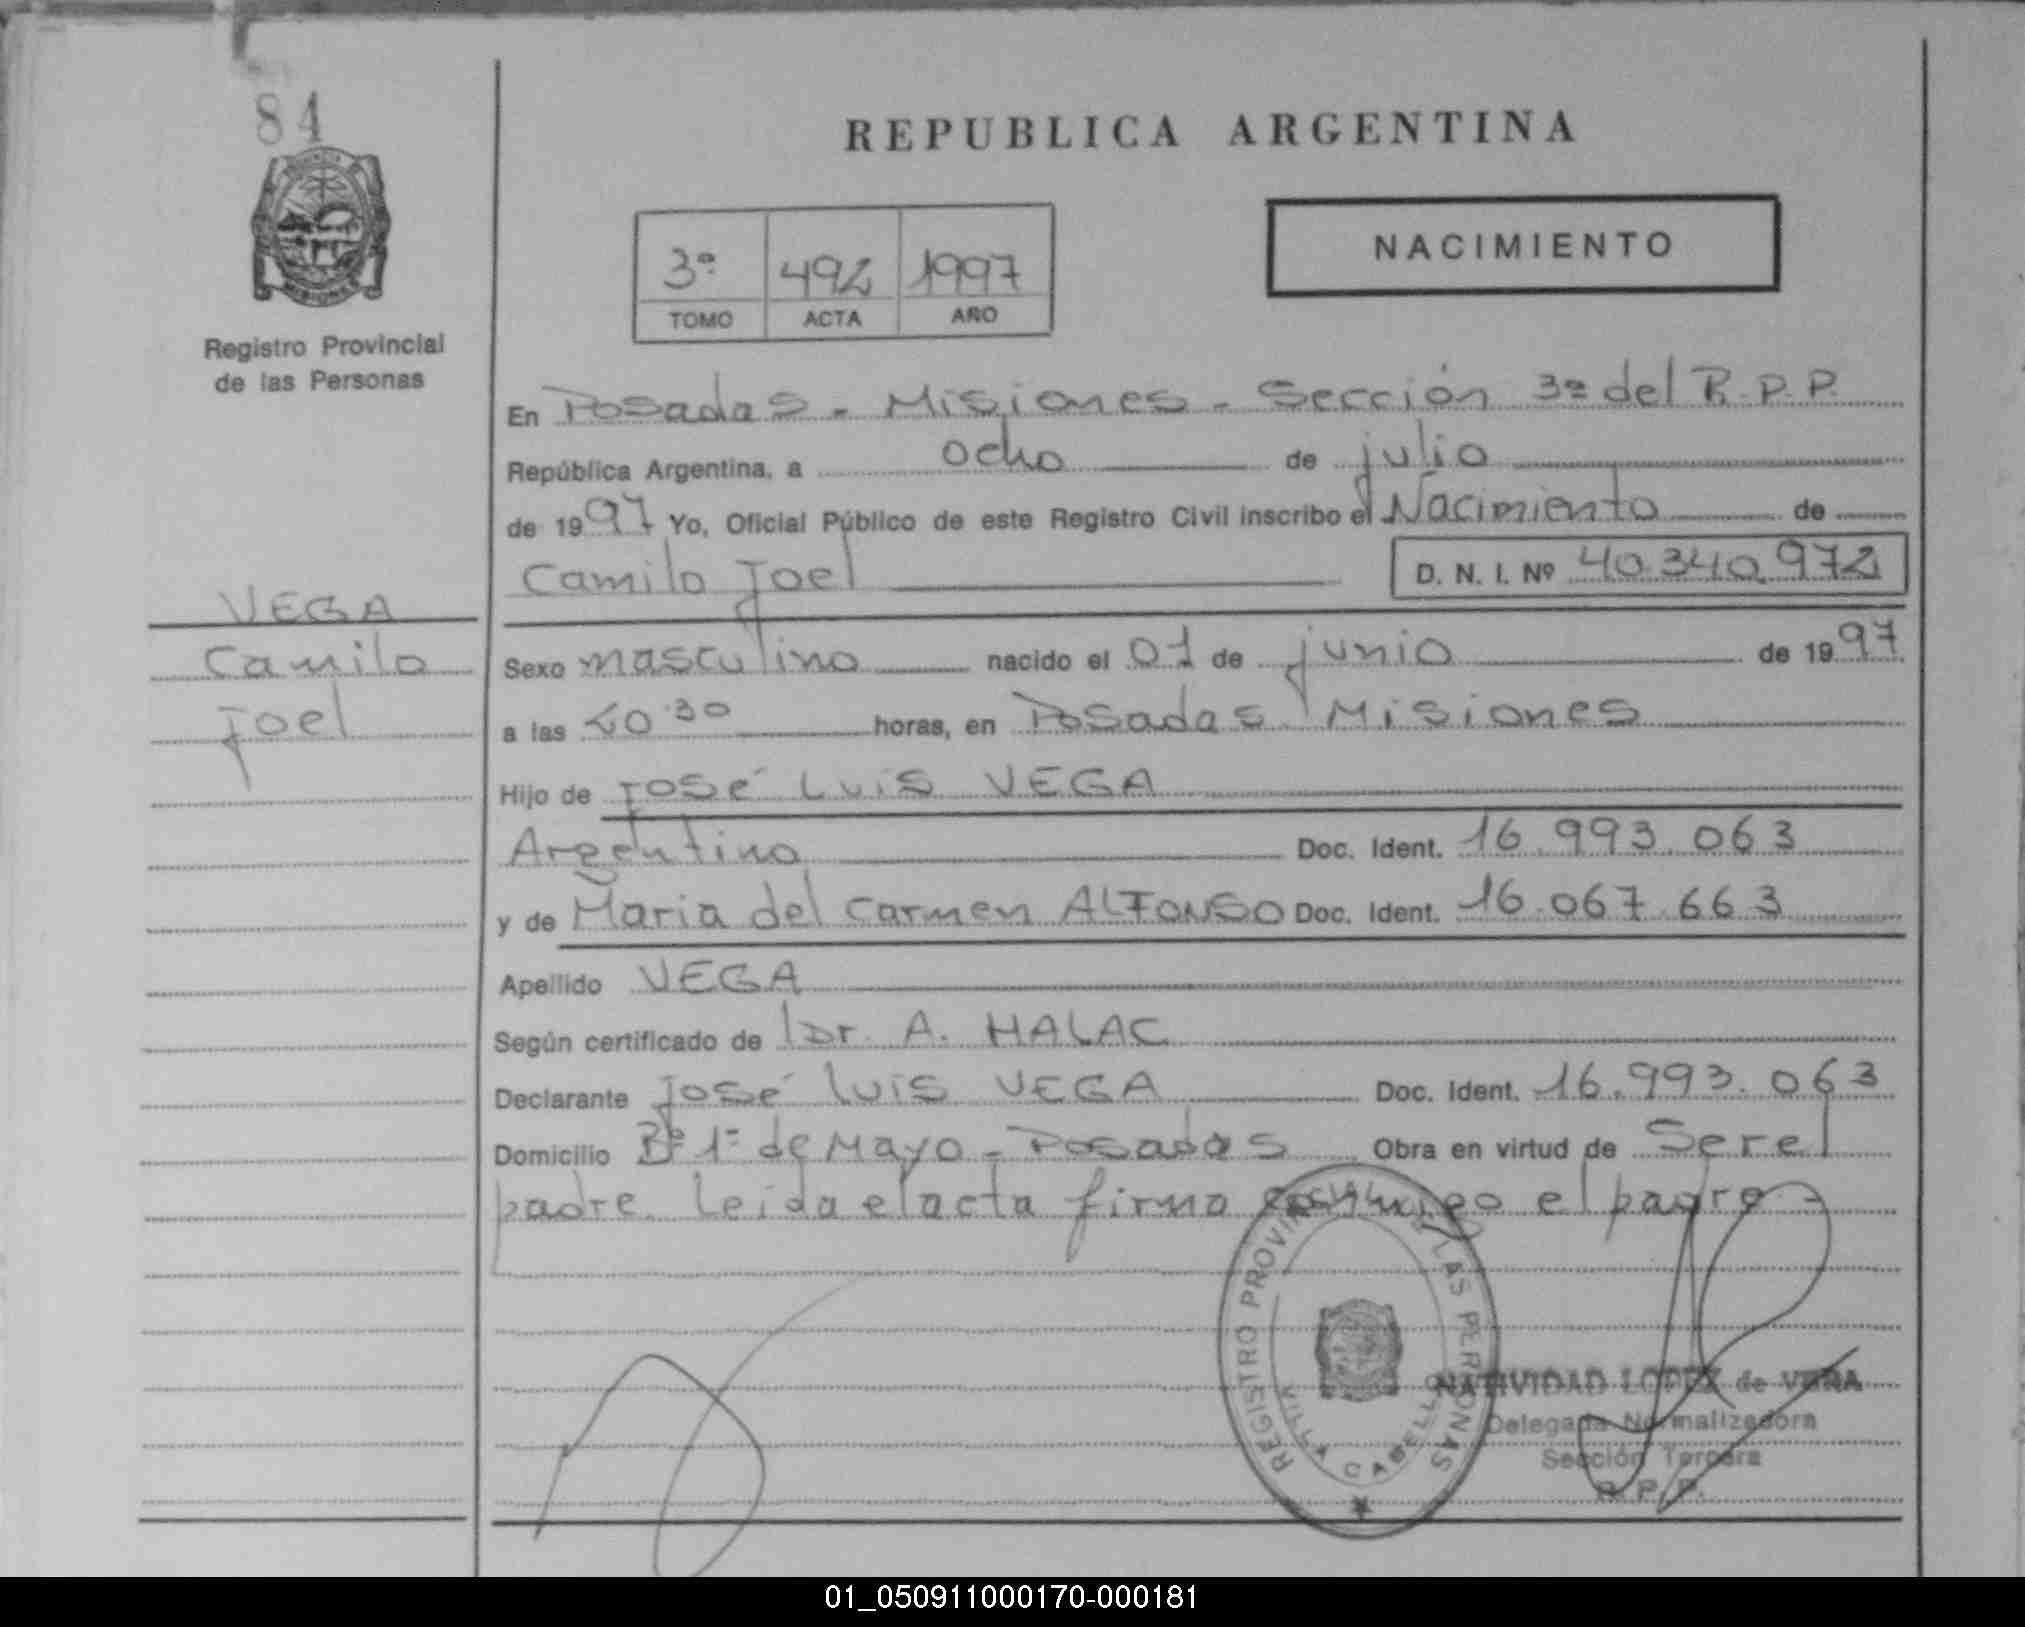 84
REPUBLICA ARGENTINA
NACIMIENTO
3º 492 1997
TOMO ACTA AÑO
Registro Provincial
de las Personas
En Posadas - Misiones - Sección 3ª del R.P.P.
República Argentina, a ocho de julio
de 1997 Yo, Oficial Público de este Registro Civil inscribo el Nacimiento de
Camilo Joel D. N. I. Nº 40.340.972
VEGA
Camilo
Joel
Sexo masculino nacido el 01 de junio de 1997
a las 20:30 horas, en Posadas Misiones
Hijo de José Luis VEGA
Argentino Doc. Ident. 16.993.063
y de Maria del Carmen ALFONSO Doc. Ident. 16.067.663
Apellido VEGA
Según certificado de Dr. A. HALAC
Declarante José Luis VEGA Doc. Ident. 16.993.063
Domicilio Bº 1º de Mayo - Posadas Obra en virtud de Ser el
padre. Leida el acta firma conmigo el padre -
REGISTRO PROVINCIAL DE LAS PERSONAS
VILLA CABELLO
NATIVIDAD LOPEZ de VERA
Delegada Normalizadora
Sección Tercera
R. P. P.
01_050911000170-000181